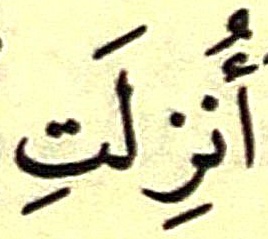 أُنزِلَتِ